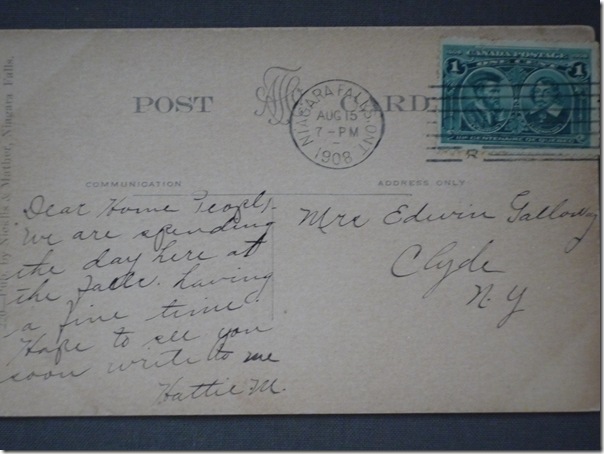 CANADA POSTAGE
1 ONE CENT 1
POST CARD
NIAGARA FALLS. ONT
AUG 15
7 - PM
1908
R
COMMUNICATION
ADDRESS ONLY
Dear Home People,
We are spending
the day here at
the Falls. having
a fine time
Hope to see you
soon write to me
Hattie M.
Mrs Edwin Galloway
Clyde
N. Y
& Mather, Niagara Falls.